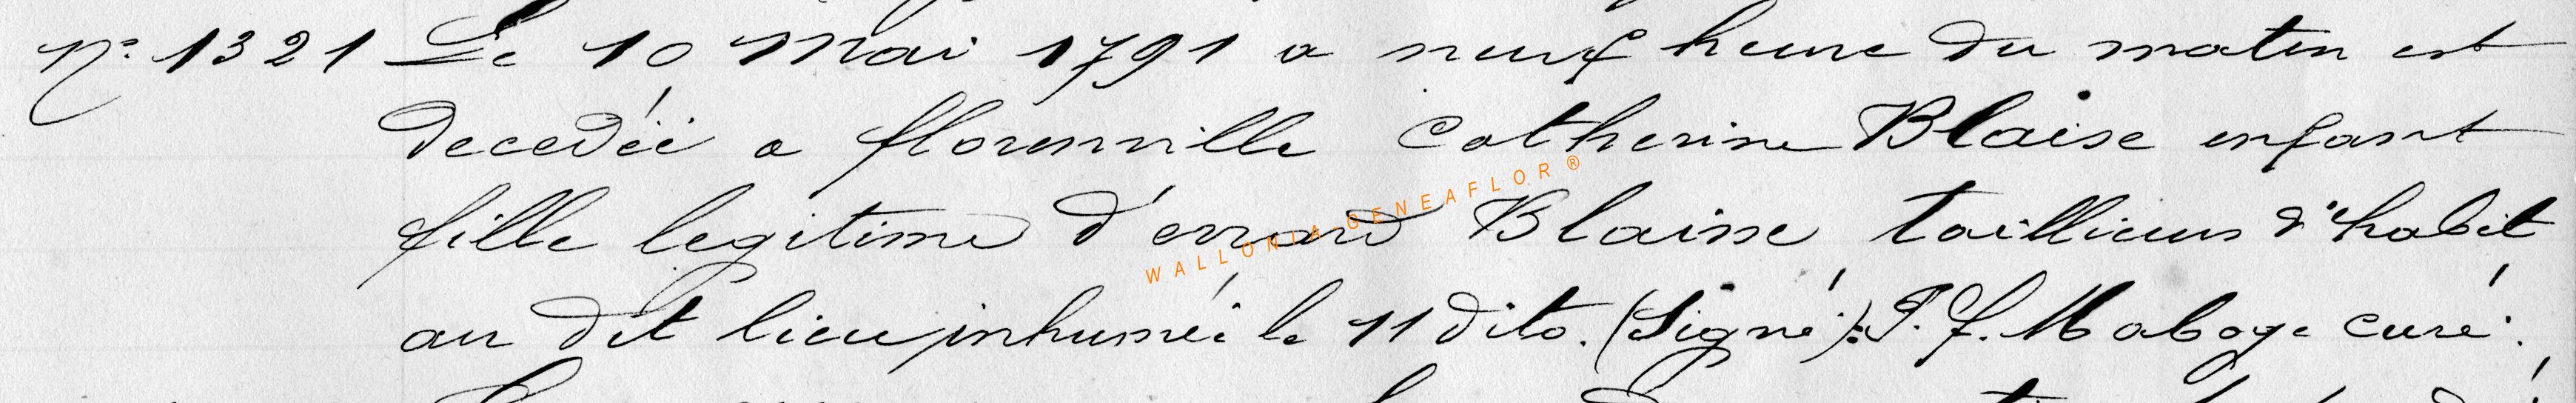 N° 1321 Le 10 mai 1791 a neuf heure du matin est
decedéé a florenville Catherine Blaise enfant
fille legitime d'evrard Blaise tailleur d'habit
WALLONIA GENEAFLOR ®
au dit lieu inhumée le 11 dito. (Signé): J. f. Maboge curé.